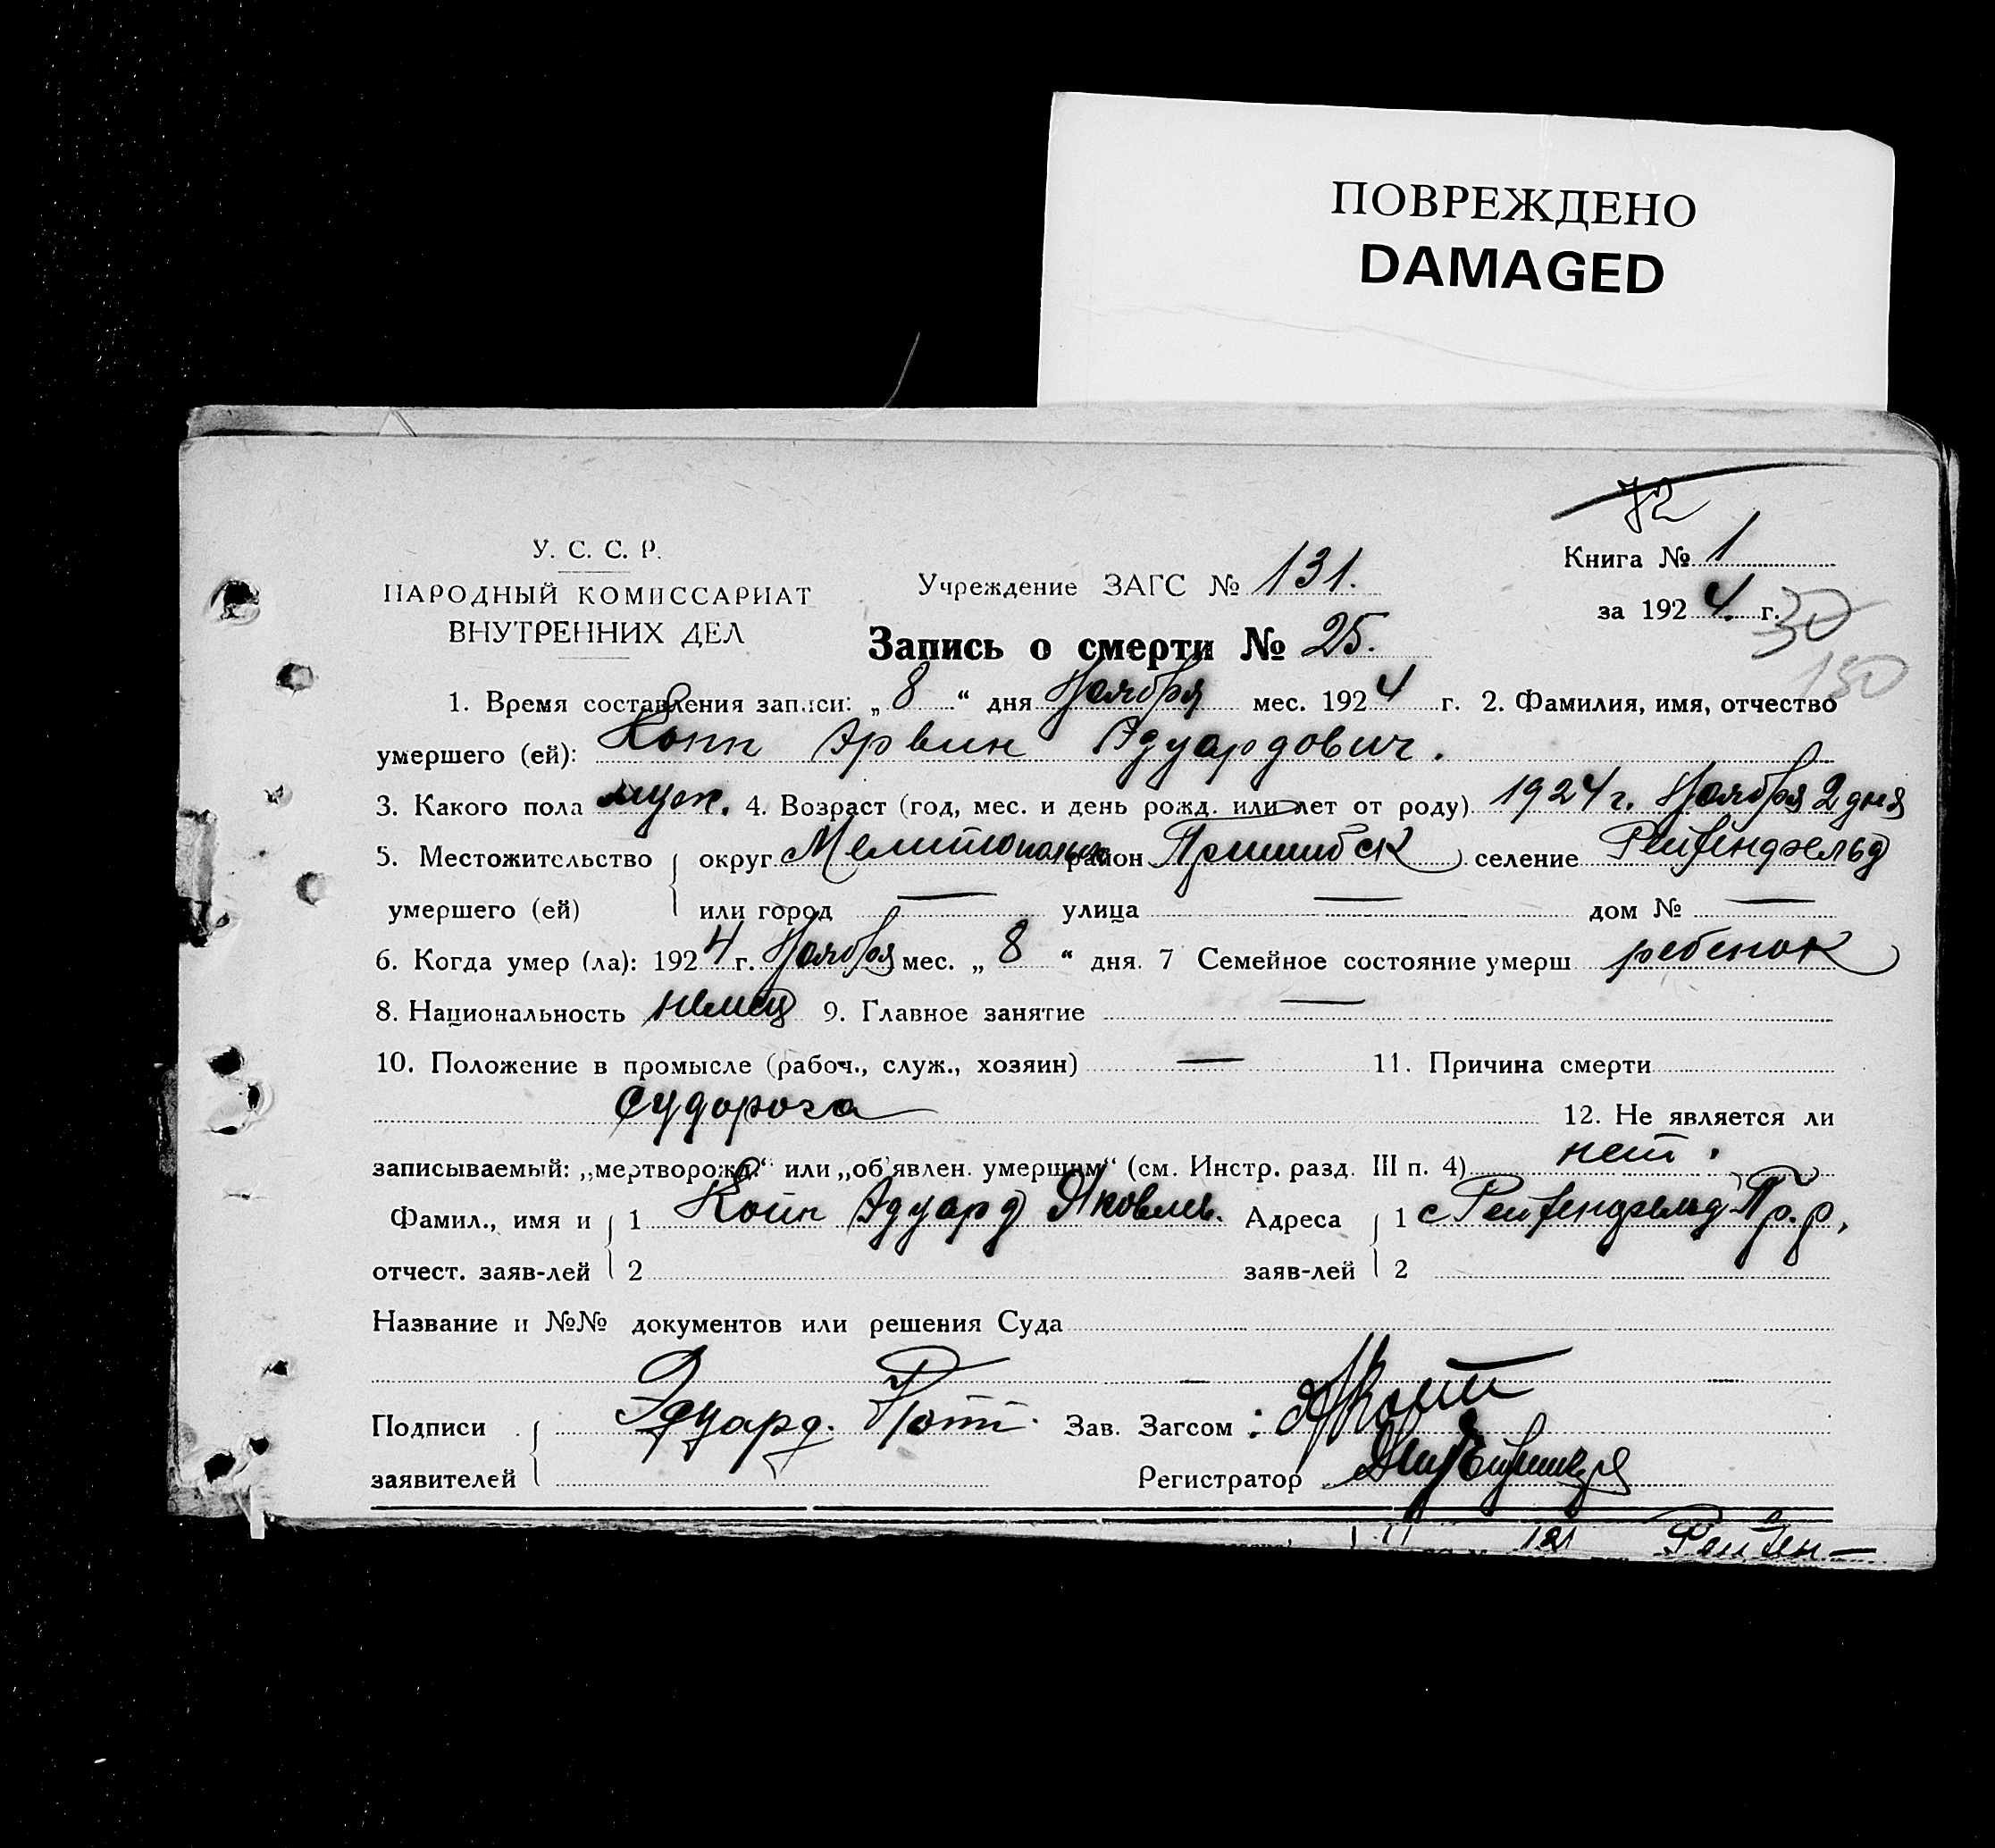 ПОВРЕЖДЕНО
DAMAGED
72
У. С. С. Р.
НАРОДНЫЙ КОМИССАРИАТ
ВНУТРЕННИХ ДЕЛ
Учреждение ЗАГС № 131.
Книга № 1
за 1924 г.
30
150
Запись о смерти № 25.
1. Время составления записи: „8“ дня Ноября мес. 1924 г. 2. Фамилия, имя, отчество
умершего (ей): Копп Эрвин Эдуардович.
3. Какого пола муж. 4. Возраст (год, мес. и день рожд. или лет от роду) 1924 г. Ноября 2 дня
5. Местожительство округ Мелитополь район Пришибск селение Рейхенфельд
умершего (ей) или город — улица — дом № —
6. Когда умер (ла): 1924 г. Ноября мес. „8“ дня. 7 Семейное состояние умерш ребенок
8. Национальность немец 9. Главное занятие —
10. Положение в промысле (рабоч., служ., хозяин) — 11. Причина смерти
судорога 12. Не является ли
записываемый: „мертворожд.“ или „об'явлен. умершим“ (см. Инстр. разд. III п. 4) нет.
Фамил., имя и 1 Копп Эдуард Яковлев. Адреса 1 с Рейхенфельд Пр. р.
отчест. заяв-лей 2 заяв-лей 2
Название и №№ документов или решения Суда
Подписи Эдуард. Копп. Зав. Загсом:
заявителей Регистратор
121 Рейхен-